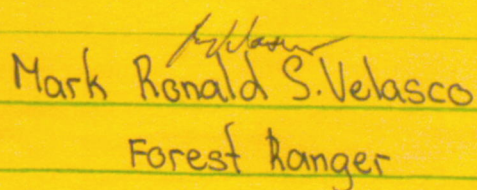 Mark Ronald S. Velasco
Forest Ranger